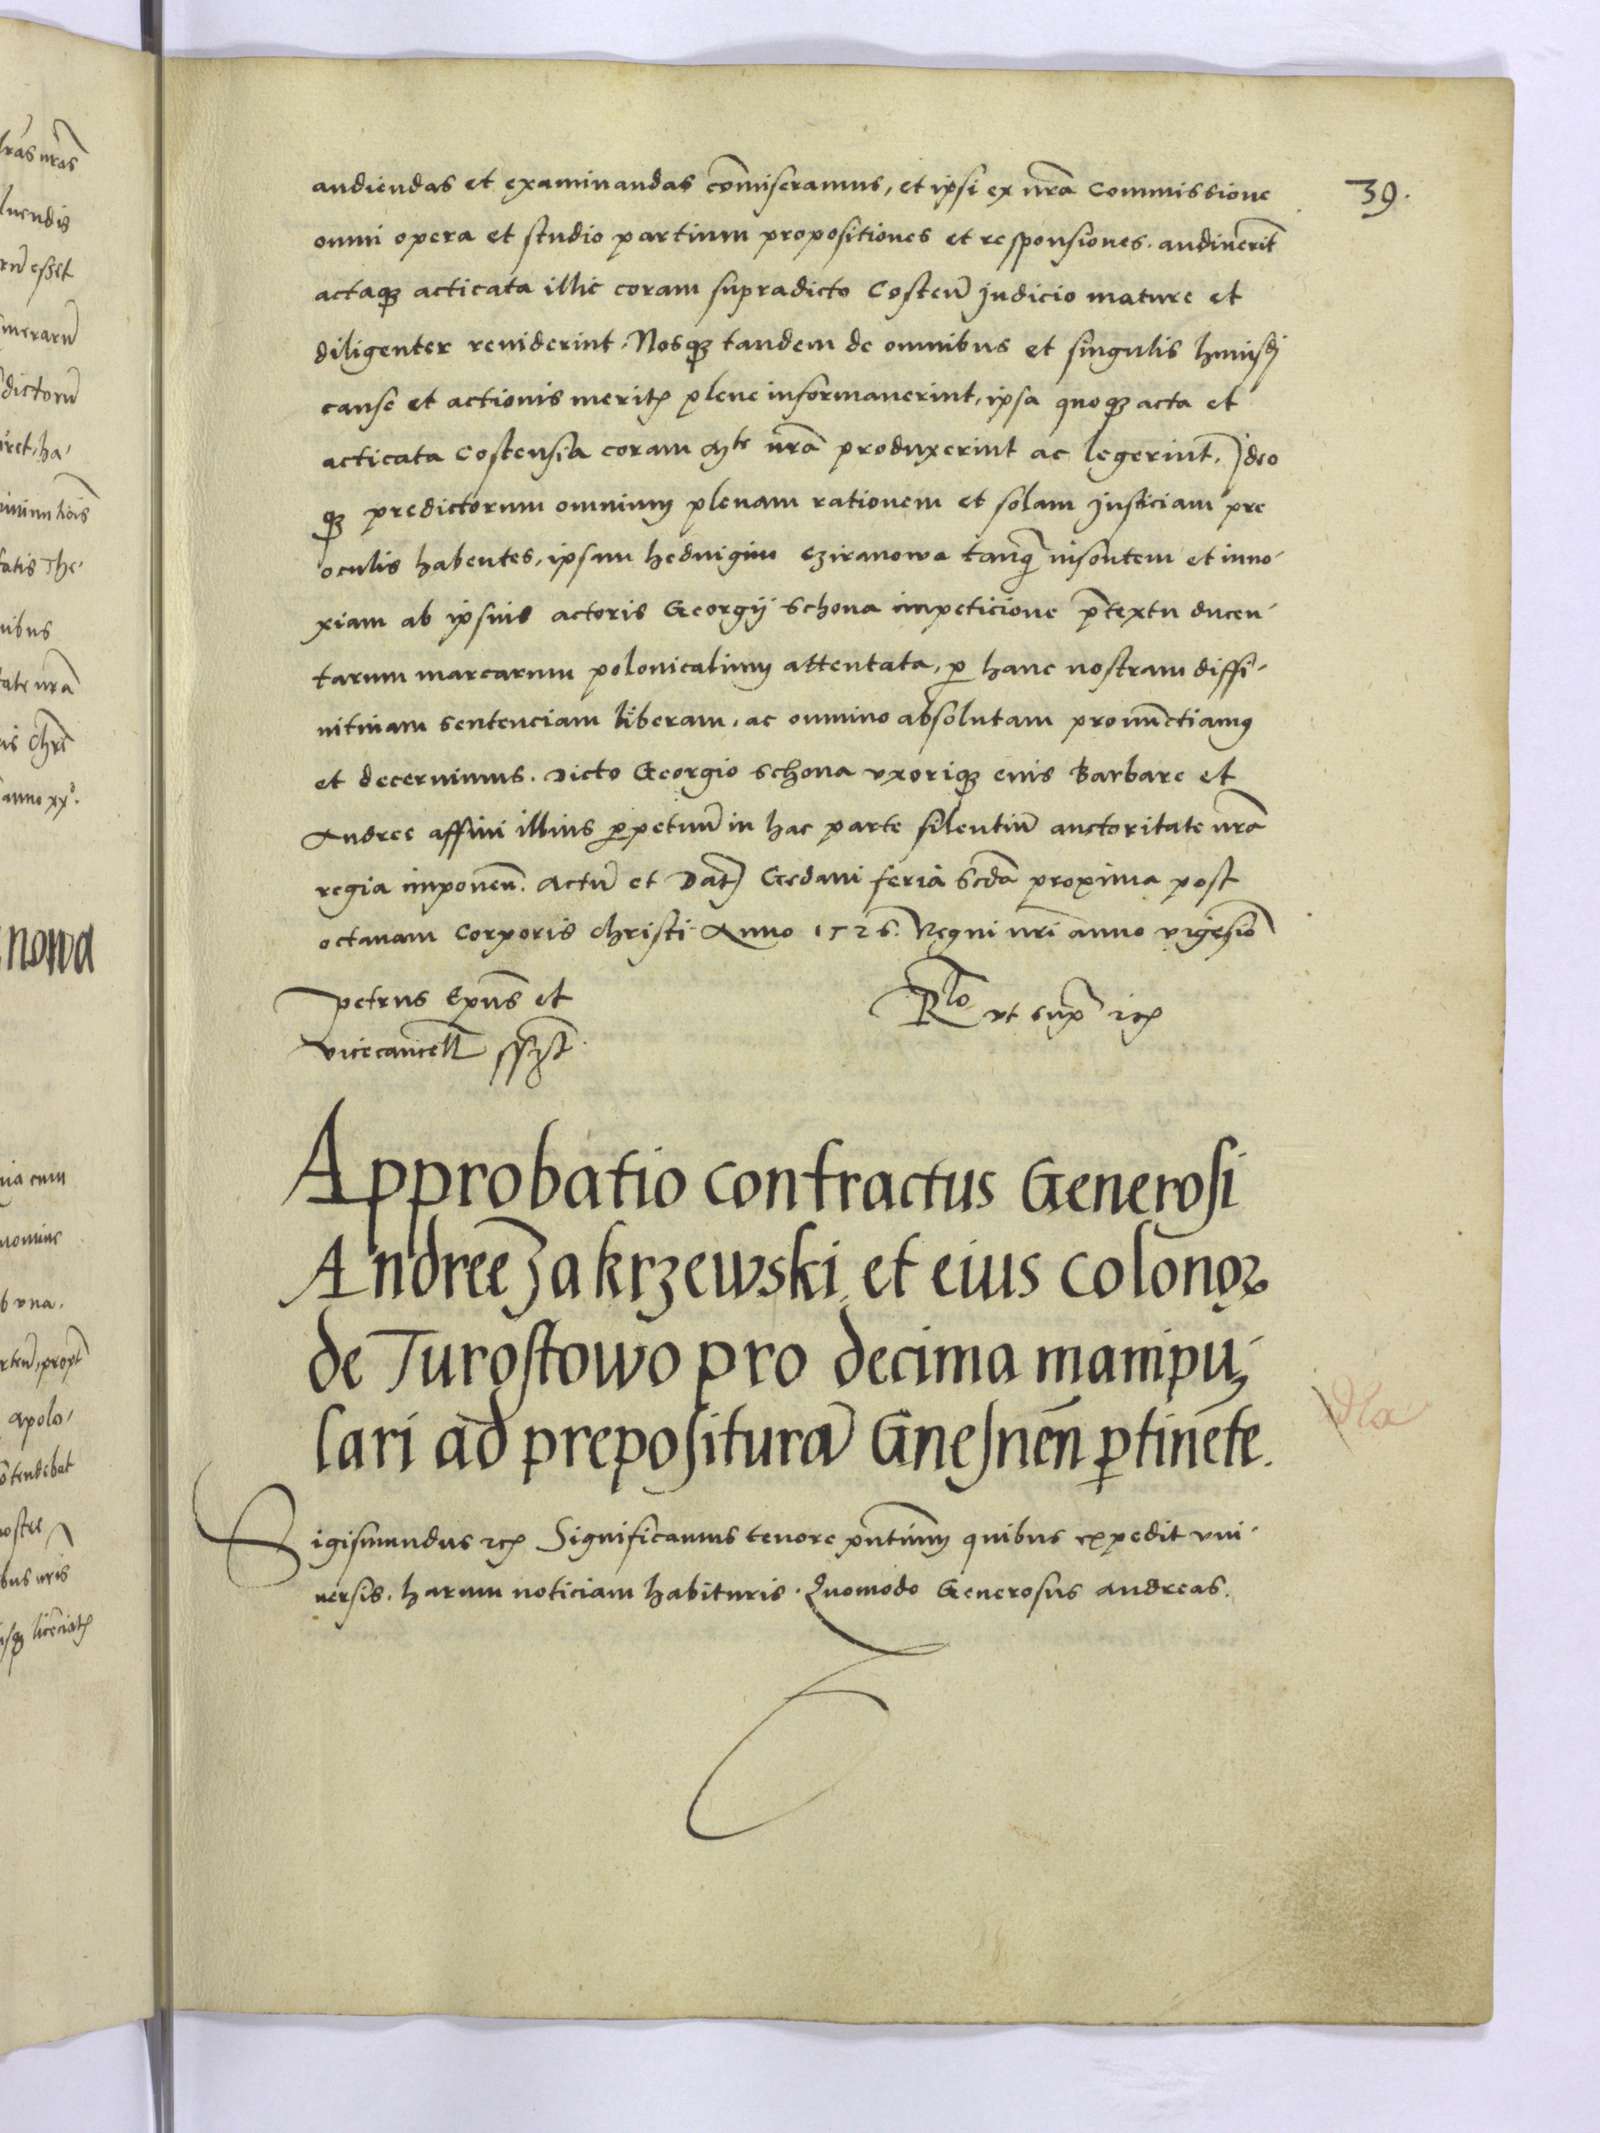 39.
audiendas et examinandas cōmiseramus, et ipsi ex nrā Commissione
omni opera et studio partium propositiones et responsiones. audiuerīt
actaqꝫ acticata illic coram supradicto Costeñ Judicio mature et
diligenter reuiderint. Nosqꝫ tandem de omnibus et singulis huiusꝺi
cause et actionis meritꝭ plene informauerint, ipsa quoqꝫ acta et
acticata Costensia coram Mte nrā produxerint ac legerint. Ideo
qꝫ predictorum omnium plenam rationem et solam Justiciam pre
oculis habentes, ipsam heduigim Cziranowa tanq̄ insontem et inno-
xiam ab ipsius actoris Georgij Schona impeticione p̄textu ducen-
tarum marcarum polonicalium attentata, ꝑ hanc nostram diffi-
nitiuam sentenciam liberam, ac omnino absolutam pronūctiamꝰ
et decernimus. Dicto Georgio Schona vxoriqꝫ eius Barbare et
Andree affini illius ꝑpetuū in hac parte silentiū auctoritate nrā
regia imponeñ. Actū et Dat̄ Gedani feria Scdā proxima post
octauam Corporis christi Anno 1526. Regni nrī anno vigesīo
petrus Ep̄us et
vicecancell̄ sspt̄
Rlo vt sup̄ ⁊cꝭ
Approbatio contractus Generosi
Andreę Zakrzewski et eius colonoꝝ
de Turostowo pro decima manipu-
lari ad preposituraꝫ Gnesneñ ꝑtinēte.
Sigismundus ⁊cꝭ Significamus tenore pn̄tium quibus expedit vni-
uersis. harum noticiam habituris. Quomodo Generosus Andreas.